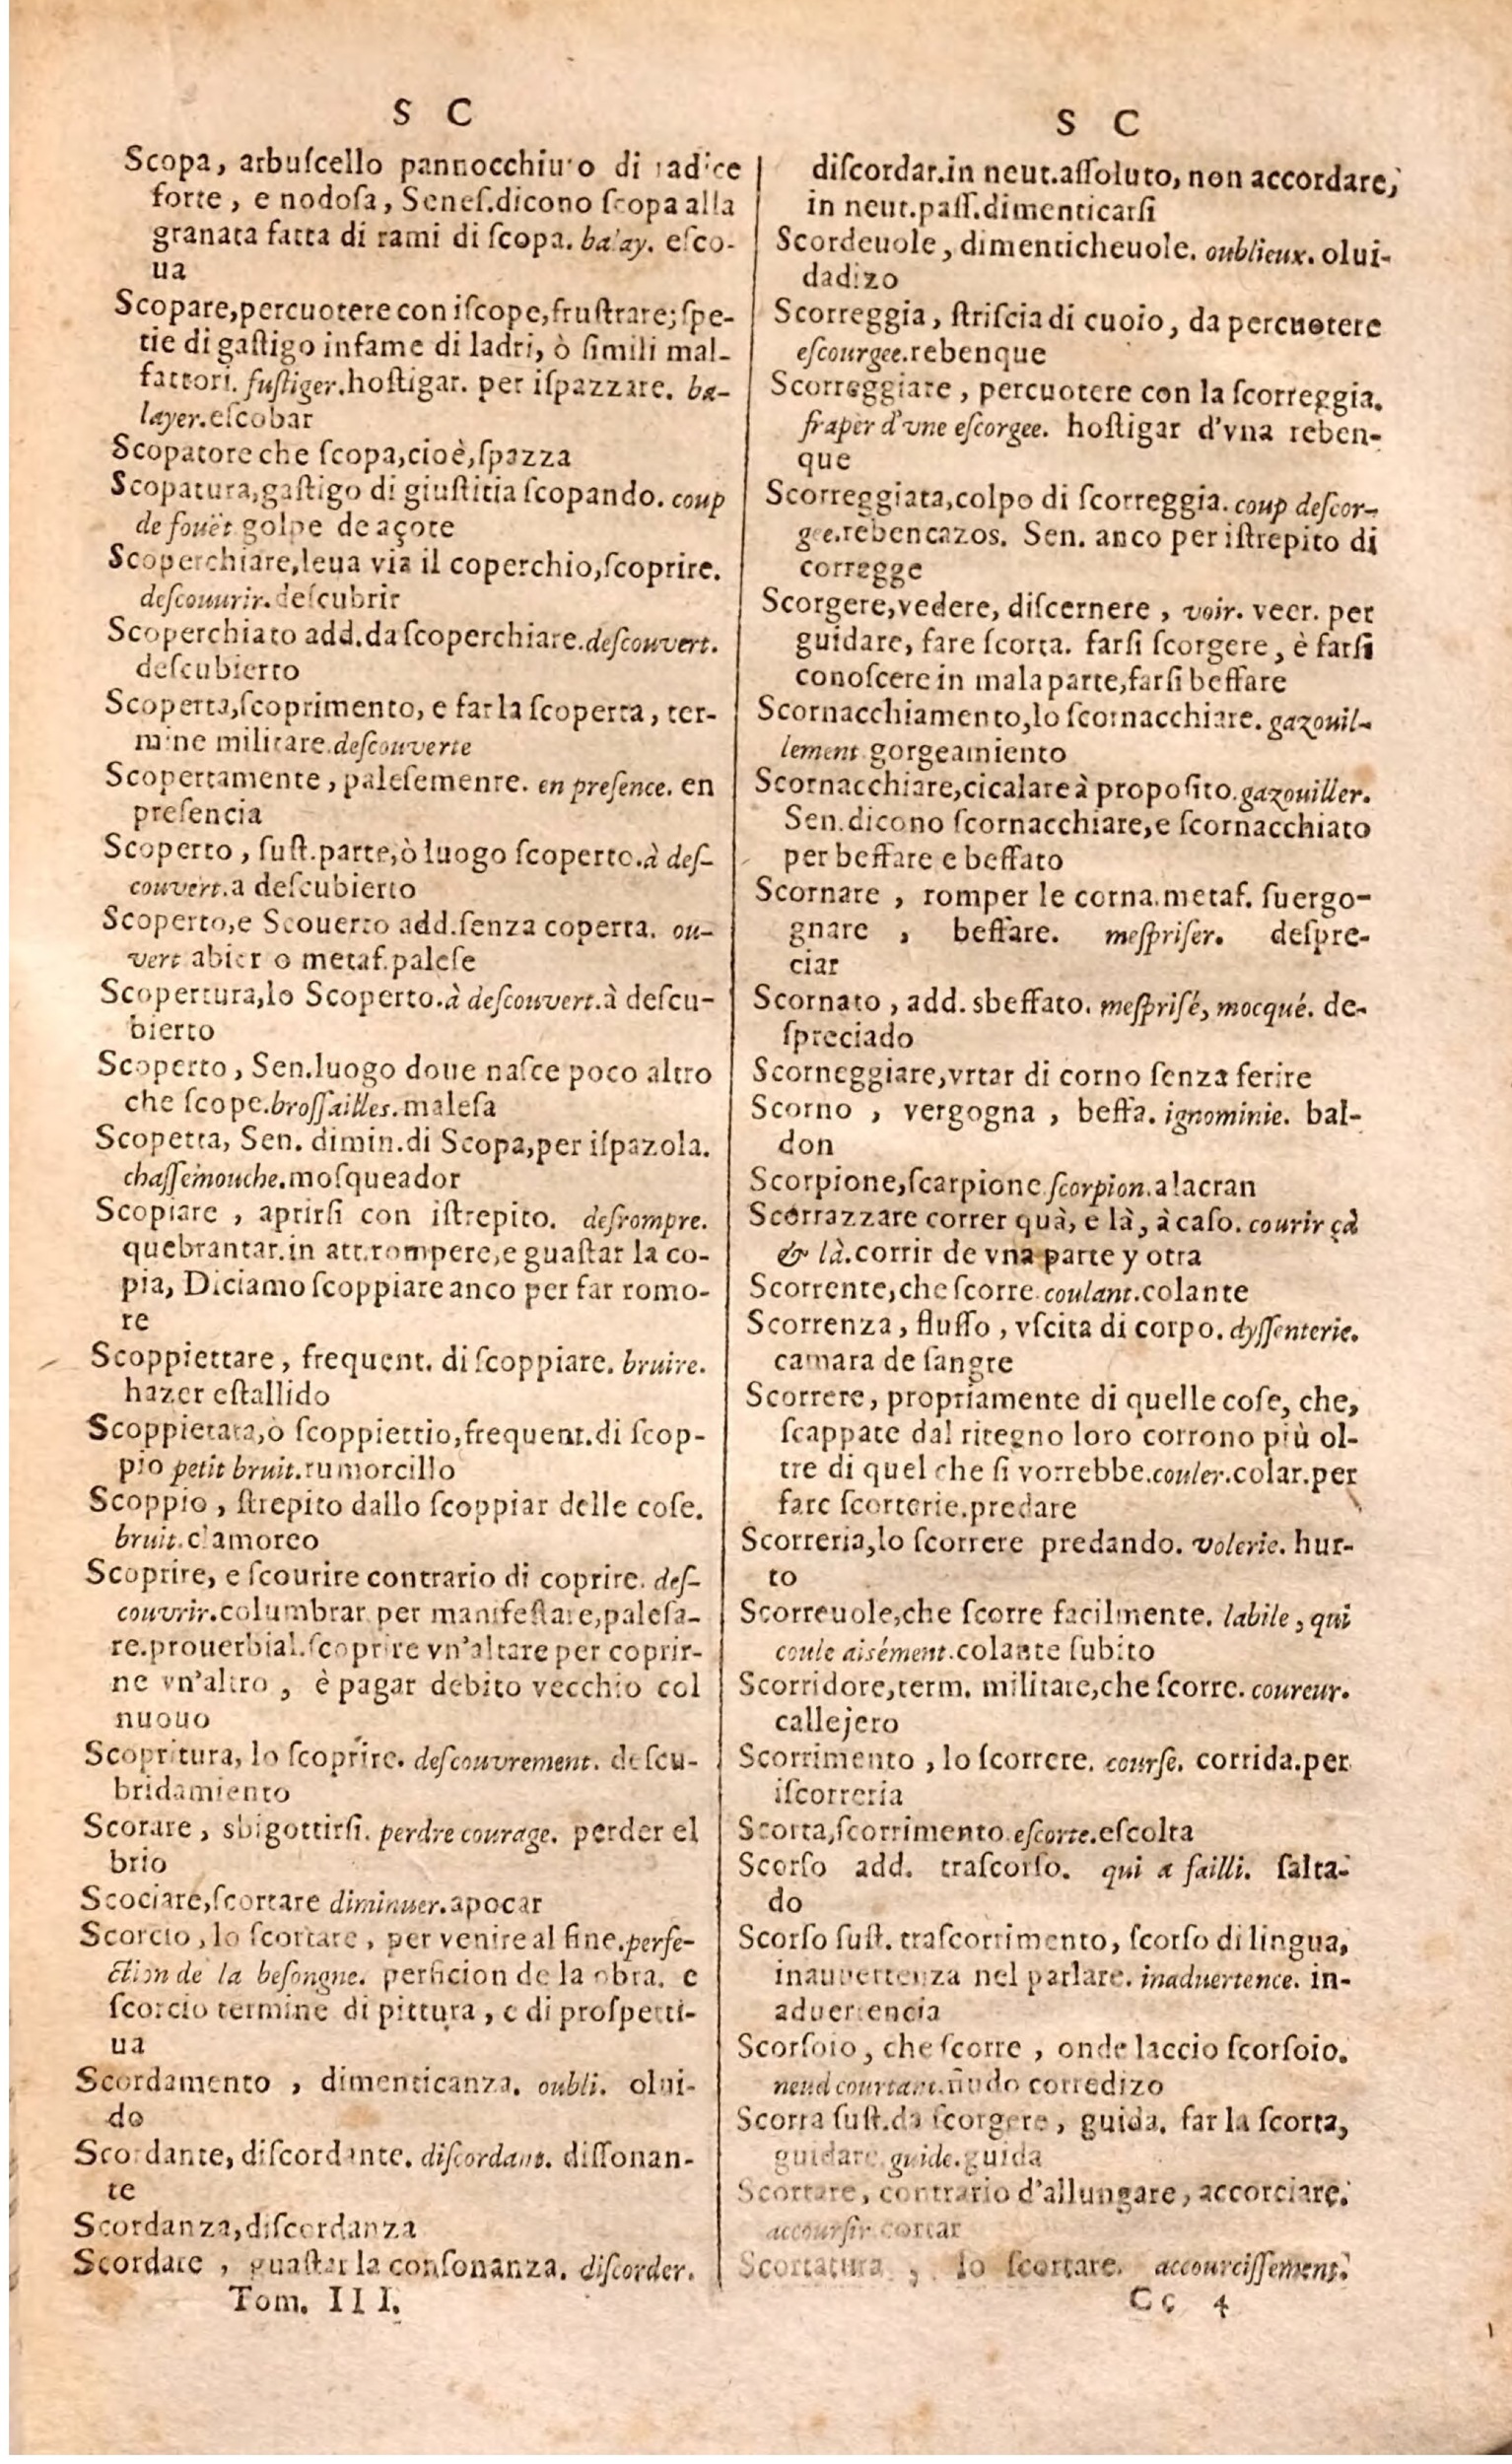 S C
Scopa, arbuſcello pannocchiuto di radice
forte, e nodoſa, Seneſ.dicono ſcopa alla
granata fatta di rami di ſcopa. balay. eſco-
ua
Scopare,percuotere con iſcope,fruſtrare; ſpe-
tie di gaſtigo infame di ladri, ò ſimili mal-
fattori. fuſtiger.hoſtigar. per iſpazzare. ba-
layer.eſcobar
Scopatore che ſcopa,cioè,ſpazza
Scopatura,gaſtigo di giuſtitia ſcopando. coup
de fouët golpe de açote
Scoperchiare,leua via il coperchio,ſcoprire.
deſcouurir.deſcubrir
Scoperchiato add.da ſcoperchiare.deſcouvert.
deſcubierto
Scoperta,ſcoprimento, e far la ſcoperta, ter-
mine militare.deſcouverte
Scopertamente, paleſemenre. en preſence. en
preſencia
Scoperto, ſuſt.parte,ò luogo ſcoperto.à deſ-
couvert.a deſcubierto
Scoperto,e Scouerto add.ſenza coperta. ou-
vert abier o metaf.paleſe
Scopertura,lo Scoperto.à deſcouvert.à deſcu-
bierto
Scoperto, Sen.luogo doue naſce poco altro
che ſcope.broſſailles.maleſa
Scopetta, Sen. dimin.di Scopa,per iſpazola.
chaſſemouche.moſqueador
Scopiare, aprirſi con iſtrepito. deſrompre.
quebrantar.in att.rompere,e guaſtar la co-
pia, Diciamo ſcoppiare anco per far romo-
re
Scoppiettare, frequent. di ſcoppiare. bruire.
hazer eſtallido
Scoppietata,ò ſcoppiettio,frequent.di ſcop-
pio petit bruit.rumorcillo
Scoppio, ſtrepito dallo ſcoppiar delle coſe.
bruit.clamoreo
Scoprire, e ſcourire contrario di coprire. deſ-
couvrir.columbrar per manifeſtare,paleſa-
re.prouerbial.ſcoprire vn'altare per coprir-
ne vn'altro, è pagar debito vecchio col
nuouo
Scopritura, lo ſcoprire. deſcouvrement. deſcu-
bridamiento
Scorare, sbigottirſi. perdre courage. perder el
brio
Scociare,ſcortare diminuer.apocar
Scorcio, lo ſcortare, per venire al fine.perfe-
ction de la beſongne. perficion de la obra. e
ſcorcio termine di pittura, e di proſpetti-
ua
Scordamento, dimenticanza. oubli. olui-
do
Scordante, diſcordante. diſcordant. diſſonan-
te
Scordanza,diſcordanza
Scordare, guaſtar la conſonanza. diſcorder.
Tom. III.
S C
diſcordar.in neut.aſſoluto, non accordare,
in neut.paſſ.dimenticarſi
Scordeuole, dimenticheuole. oublieux. olui-
dadizo
Scorreggia, ſtriſcia di cuoio, da percuotere
eſcourgee.rebenque
Scorreggiare, percuotere con la ſcorreggia.
fraper d'vne eſcorgee. hoſtigar d'vna reben-
que
Scorreggiata,colpo di ſcorreggia. coup deſcor-
gee.rebencazos. Sen. anco per iſtrepito di
corregge
Scorgere,vedere, diſcernere, voir. veer. per
guidare, fare ſcorta. farſi ſcorgere, è farſi
conoſcere in mala parte,farſi beffare
Scornacchiamento,lo ſcornacchiare. gazouil-
lement gorgeamiento
Scornacchiare,cicalare à propoſito.gazouiller.
Sen.dicono ſcornacchiare,e ſcornacchiato
per beffare e beffato
Scornare, romper le corna.metaf. ſuergo-
gnare, beffare. meſpriſer. deſpre-
ciar
Scornato, add. sbeffato. meſpriſé, mocqué. de-
ſpreciado
Scorneggiare,vrtar di corno ſenza ferire
Scorno, vergogna, beffa. ignominie. bal-
don
Scorpione,ſcarpione.ſcorpion.alacran
Scorrazzare correr quà, e là, à caſo. courir çà
& là.corrir de vna parte y otra
Scorrente,che ſcorre.coulant.colante
Scorrenza, fluſſo, vſcita di corpo. dyſſenterie.
camara de ſangre
Scorrere, propriamente di quelle coſe, che,
ſcappate dal ritegno loro corrono più ol-
tre di quel che ſi vorrebbe.couler.colar.per
fare ſcorrerie.predare
Scorreria,lo ſcorrere predando. volerie. hur-
to
Scorreuole,che ſcorre facilmente. labile, qui
coule aisément.colante ſubito
Scorridore,term. militare,che ſcorre. coureur.
callejero
Scorrimento, lo ſcorrere. courſe. corrida.per
iſcorreria
Scorta,ſcorrimento.eſcorte.eſcolta
Scorſo add. traſcorſo. qui a failli. ſalta-
do
Scorſo ſuſt. traſcorrimento, ſcorſo di lingua,
inauuertenza nel parlare. inaduertence. in-
aduertencia
Scorſoio, che ſcorre, onde laccio ſcorſoio.
neud courtant.ñudo corredizo
Scorta ſuſt.da ſcorgere, guida. far la ſcorta,
guidare.guide.guida
Scortare, contrario d'allungare, accorciare.
accourſir.cortar
Scortatura, lo ſcortare. accourciſſement.
Cc 4